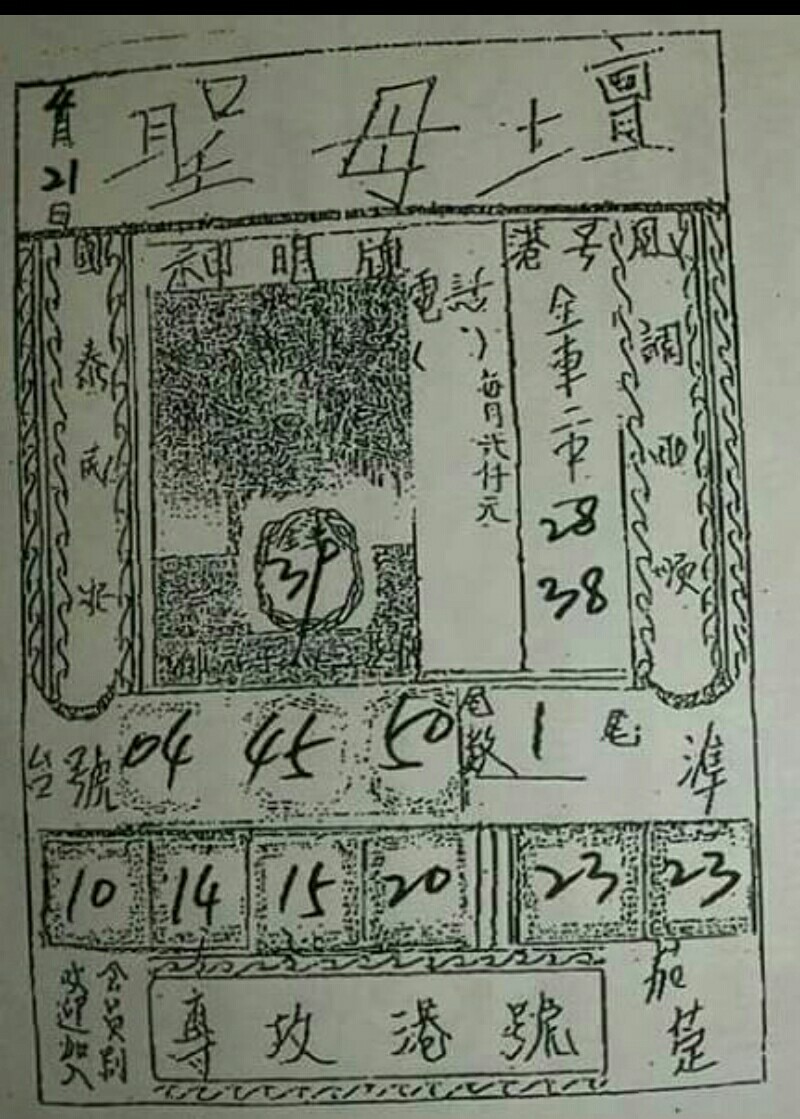 4月21日
聖母壇
國泰民安
神明牌
39
電話
( )
每月弍仟元
港号
金車二中
28
38
風調雨順
台號 04 45 50
尾數 1 尾
準
10 14 15 20 23 23
歡迎加入
会員制
專攻港號
茄萣